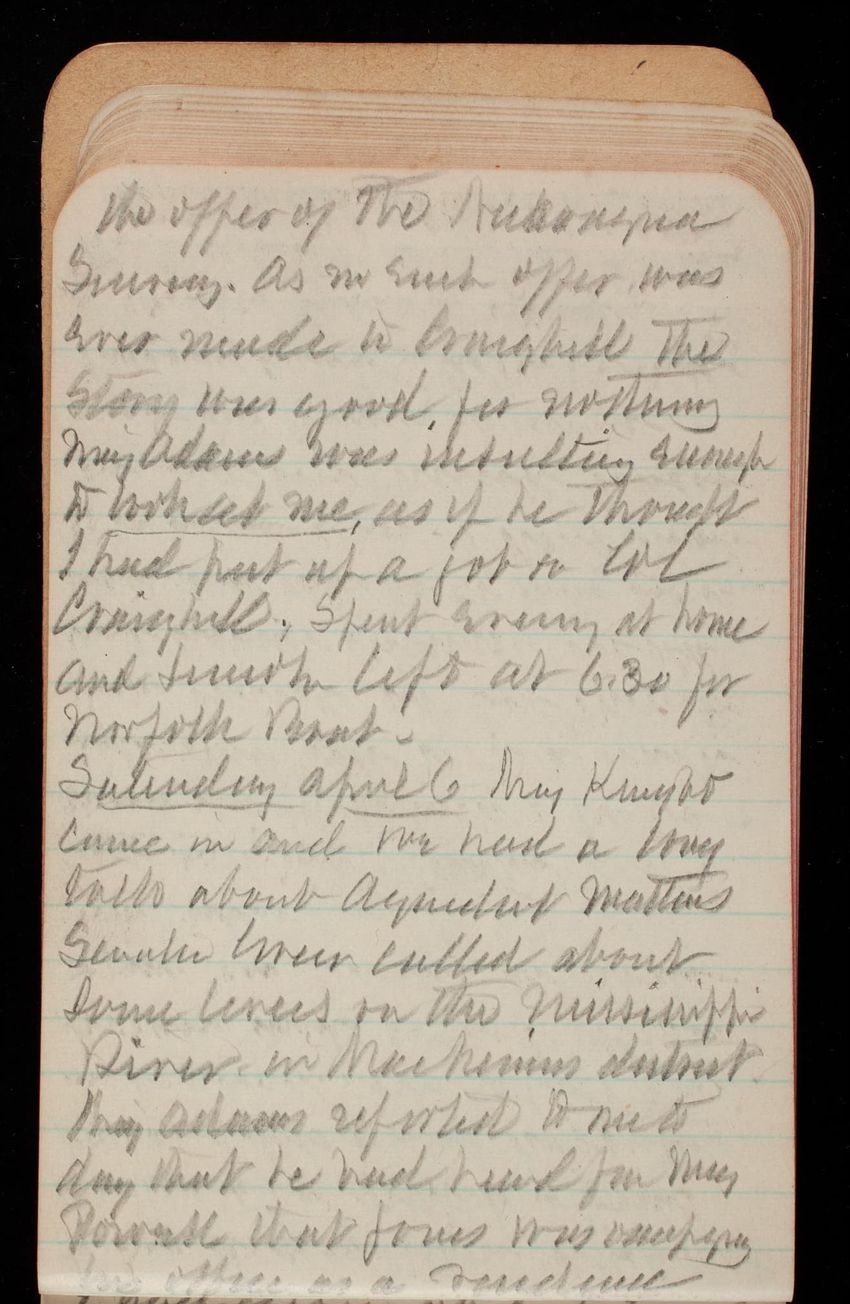 the offer of the Nicaragua
Survey. As no such offer was
ever made to Craighill the
Story was good, for nothing
Maj Adams was insulting enough
to look at me, as if he thought
I had put up a job on Col
Craighill, Spent evening at home
and left at 6.30 for
Norfolk Boat.
Saturday April 6 Maj Knight
came in and we had a long
talk about Aqueduct Matters
Senator called about
Some levees on the Mississippi
River in district.
Maj Adams reported to me to
day that he had heard from Maj
that Jones was occupying
his office as a residence